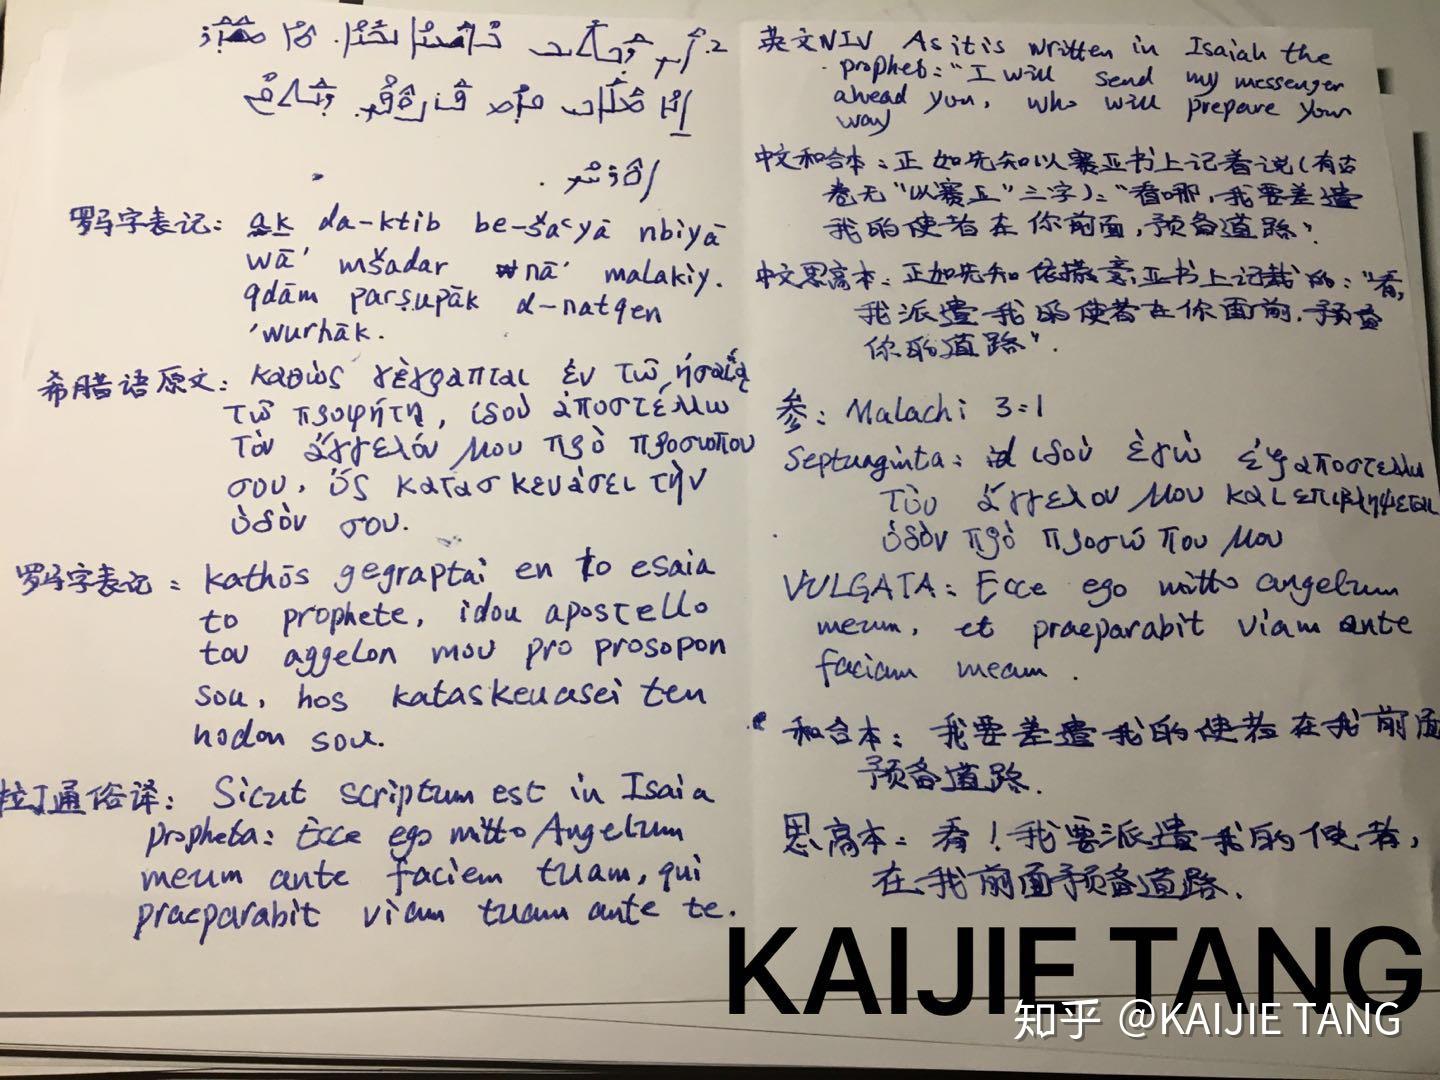 2.
罗马字表记: ak da-ktib be-šaʿyā nbiyā
wā' mšadar nā' malakiy.
qdām parṣupāk d-natqen
'wurhāk.
希腊语原文: καθὼς γέγραπται ἐν τῶ ἠσαΐᾳ
τῶ προφήτῃ, ιδοὺ ἀποστέλλω
τὸν ἄγγελόν μου πρὸ προσωπου
σου, ὅς κατασκευάσει τὴν
ὁδὸν σου.
罗马字表记: kathōs gegraptai en to esaia
to prophete, idou apostello
tou aggelon mou pro prosopon
sou, hos kataskeuasei ten
hodon sou.
拉丁通俗译: Sicut scriptum est in Isaia
propheta: Ecce ego mitto Angelum
meum ante faciem tuam, qui
praeparabit viam tuam ante te.
英文NIV As it is written in Isaiah the
prophet: "I will send my messenger
ahead you, who will prepare your
way
中文和合本: 正如先知以赛亚书上记着说(有古
卷无"以赛亚"三字): "看哪,我要差遣
我的使者在你前面,预备道路".
中文思高本: 正如先知依撒意亚书上记载的: "看,
我派遣我的使者在你面前,预备
你的道路".
参: Malachi 3:1
Septuaginta: ιδοὺ ἐγὼ ἐξαποστελλω
τὸν ἄγγελον μου και επιβληψεται
ὁδὸν πρὸ προσώπου μου
VULGATA: Ecce ego mitto angelum
meum, et praeparabit viam ante
faciam meam.
和合本: 我要差遣我的使者在我前面
预备道路.
思高本: 看!我要派遣我的使者,
在我前面预备道路.
KAIJIE TANG
知乎 @KAIJIE TANG